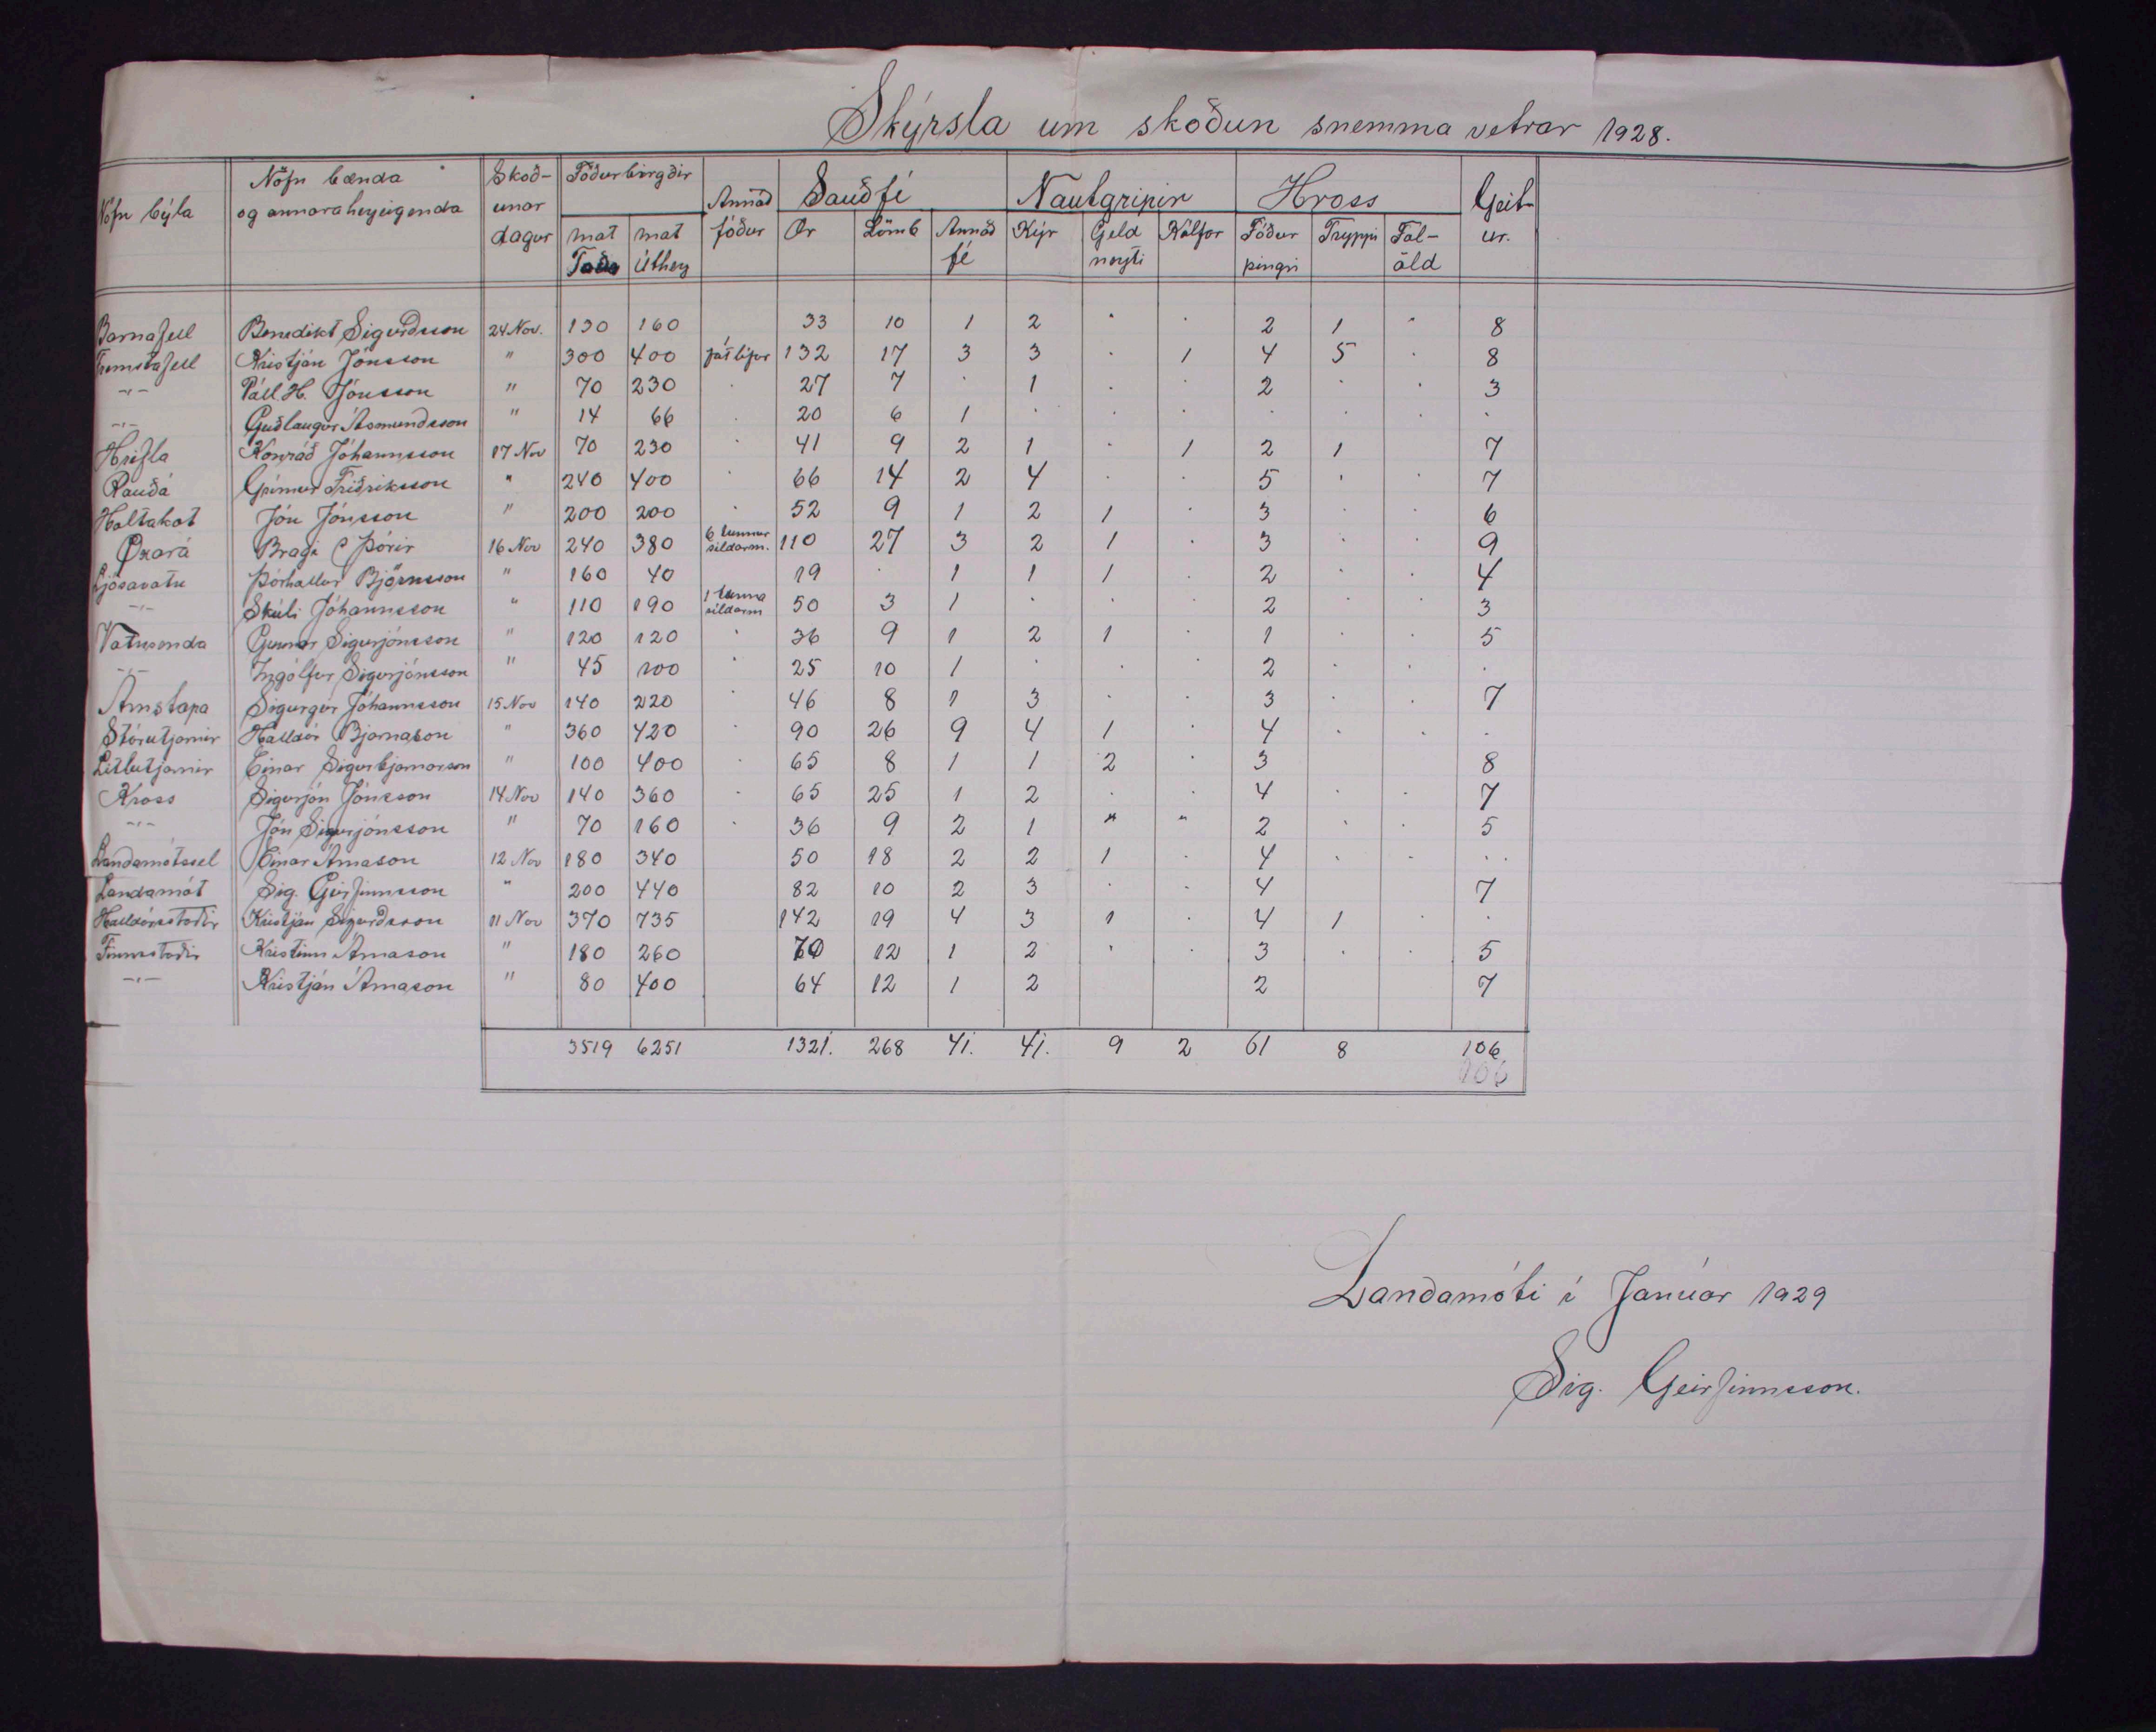 Skýrsla um skoðun snemma vetrar 1928.
Nöfn býla | Nöfn bænda og annara heyeigenda | Skoð-unar dagur | Fóðurbirgðir | Annað fóður | Sauðfé | Nautgripir | Hross | Geit-ur.
mat Taða | mat Úthey | Ær | Lömb | Annað fé | Kýr | Geld neyti | Kálfar | Fóður þingri | Tryppi | Fol-öld
Barnafell Benedikt Sigurðsson 24 Nov. 130 160 33 10 1 2 . . 2 1 . 8
Fremstafell Kristján Jónsson " 300 400 132 17 3 3 . 1 4 5 . 8
-"- Páll H. Jónsson " 70 230 . 27 7 . 1 . . 2 . . 3
-"- Guðlaugur Ásmundsson " 14 66 . 20 6 1 . . . . . . .
Hrifla Konráð Jóhannsson 17 Nov 70 230 . 41 9 2 1 . 1 2 1 7
Rauðá Grímur Friðriksson " 240 400 . 66 14 2 4 . . 5 . . 7
Holtakot Jón Jónsson " 200 200 . 52 9 1 2 1 . 3 . . 6
Øxará Bragi & Þórir 16 Nov 240 380 6 tunnur síldarm. 110 27 3 2 1 3 . . 9
Ljósavatn Þórhallur Björnsson " 160 40 19 . 1 1 1 . 2 . . 4
-"- Skúli Jóhannsson " 110 190 1 tunna síldarm 50 3 1 . . . 2 . . 3
Vatnsenda Gunnar Sigurjónsson " 120 120 . 36 9 1 2 1 . 1 . . 5
-"- Ingólfur Sigurjónsson " 45 100 . 25 10 1 . . . 2 . . .
Arnstapa Sigurgeir Jóhannsson 15 Nov 140 220 . 46 8 1 3 . . 3 . 7
Stórutjarnir Halldór Bjarnason " 360 420 . 90 26 9 4 1 . 4 . . .
Litlutjarnir Einar Sigurbjarnarson " 100 400 . 65 8 1 1 2 . 3 8
Kross Sigurjón Jónsson 14 Nov 140 360 . 65 25 1 2 . . 4 . . 7
-"- Jón Sigurjónsson " 70 160 . 36 9 2 1 " " 2 . . 5
Landamótssel Einar Árnason 12 Nov 180 340 50 18 2 2 1 . 4 . . . .
Landamót Sig. Geirfinnsson " 200 440 82 10 2 3 . . 4 7
Halldórsstaðir Kristján Sigurðsson 11 Nov 370 735 142 19 4 3 1 . 4 1 . .
Finnsstaðir Kristinn Árnason " 180 260 70 12 1 2 . . 3 . . 5
-"- Kristján Árnason " 80 400 64 12 1 2 2 7
3519 6251 1321. 268 41. 41. 9 2 61 8 106
106
Landamóti í Janúar 1929
Sig. Geirfinnsson.